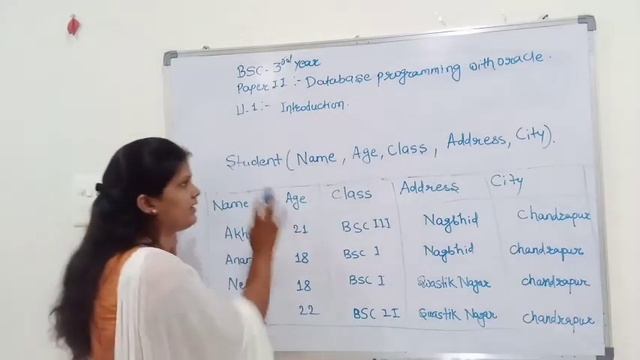 BSC-3rd year
Paper II :- Database programming with oracle.
U-1:- Introduction.
Student (Name, Age, Class, Address, City).
Name Age Class Address City
21 BSC III Nagbhid Chandrapur
18 BSC I Nagbhid chandrapur
18 BSC I Swastik Nagar chandrapur
22 BSC II Swastik Nagar chandrapur